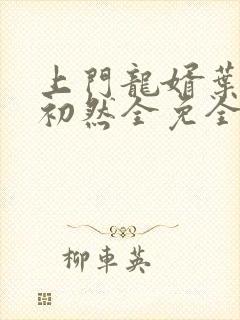 上門龍婿葉
初然全免全
柳車英